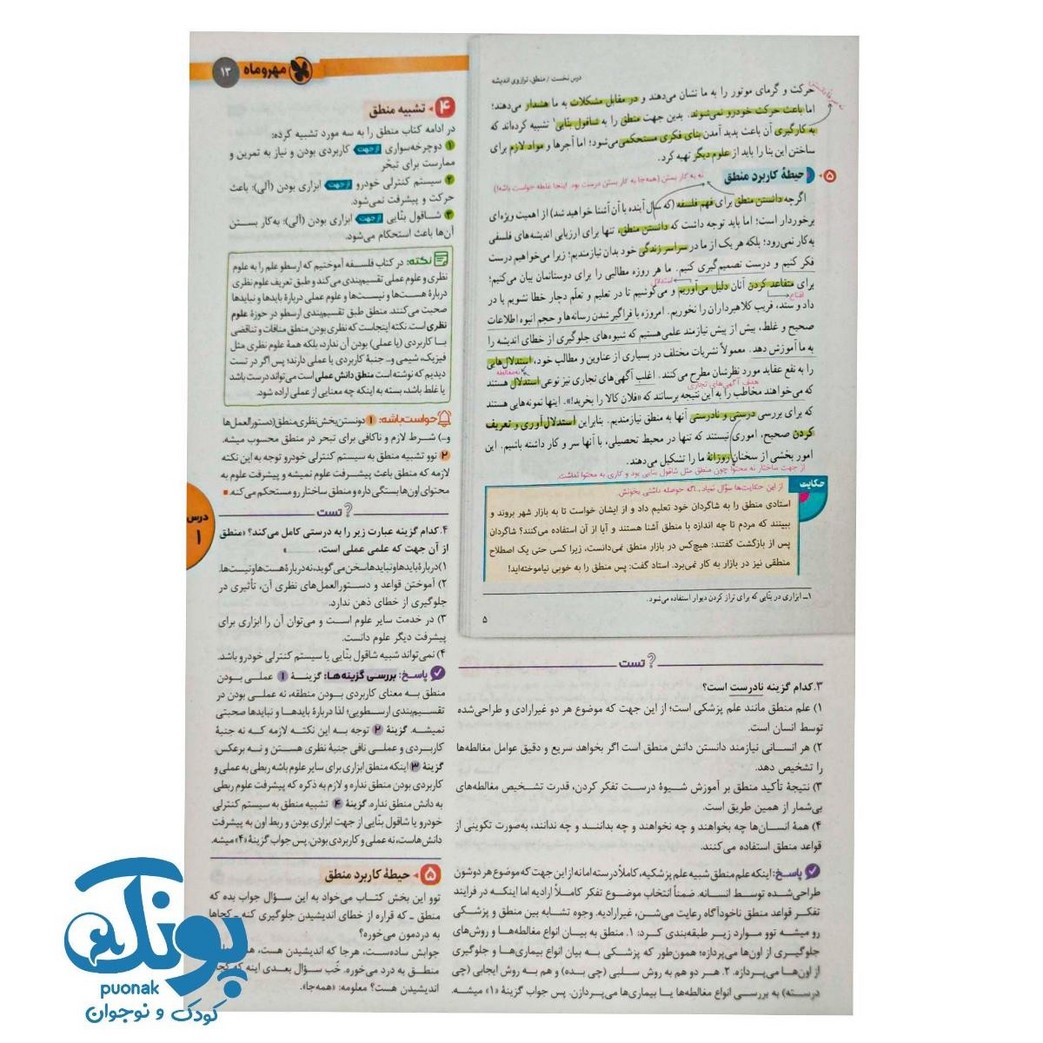 درس نخست / منطق، ترازوی اندیشه
حرکت و گرمای موتور را به ما نشان می‌دهند و در مقابل مشکلات به ما هشدار می‌دهند؛
اما باعث حرکت خودرو نمی‌شوند. بدین جهت منطق را به شاقول بنّایی۱ تشبیه کرده‌اند که
به کارگیری آن باعث پدید آمدن بنای فکری مستحکمی می‌شود؛ اما آجرها و مواد لازم برای
ساختن این بنا را باید از علوم دیگر تهیه کرد.
۵ حیطهٔ کاربرد منطق
نه به کار بستن (همه‌جا به کار بستن درست بود. اینجا غلطه حواست باشه!)
اگرچه دانستن منطق برای فهم فلسفه (که سال آینده با آن آشنا خواهید شد) از اهمیت ویژه‌ای
برخوردار است؛ اما باید توجه داشت که دانستن منطق، تنها برای ارزیابی اندیشه‌های فلسفی
به‌کار نمی‌رود؛ بلکه هر یک از ما در سراسر زندگی خود بدان نیازمندیم؛ زیرا می‌خواهیم درست
فکر کنیم و درست تصمیم‌گیری کنیم. ما هر روزه مطالبی را برای دوستانمان بیان می‌کنیم؛
استدلال
برای متقاعد کردن آنان دلیل می‌آوریم و می‌کوشیم تا در تعلیم و تعلّم دچار خطا نشویم یا در
اقناع
داد و ستد، فریب کلاهبرداران را نخوریم. امروزه با فراگیر شدن رسانه‌ها و حجم انبوه اطلاعات
صحیح و غلط، بیش از پیش نیازمند علمی هستیم که شیوه‌های جلوگیری از خطای اندیشه را
به ما آموزش دهد. معمولاً نشریات مختلف در بسیاری از عناوین و مطالب خود، استدلال‌هایی
مغالطه
را به نفع عقاید مورد نظرشان مطرح می‌کنند. اغلب آگهی‌های تجاری نیز نوعی استدلال هستند
هدف آگهی‌های تجاری
که می‌خواهند مخاطب را به این نتیجه برسانند که «فلان کالا را بخرید!». اینها نمونه‌هایی هستند
که برای بررسی درستی و نادرستی آنها به منطق نیازمندیم. بنابراین استدلال‌آوری و تعریف
کردن صحیح، اموری نیستند که تنها در محیط تحصیلی، با آنها سر و کار داشته باشیم. این
امور بخشی از سخنان روزانهٔ ما را تشکیل می‌دهند.
از جهت ساختار نه محتوا! چون منطق مثل شاقول بنایی بود و کاری به محتوا نداشت.
حکایت
از این حکایت‌ها سؤال نمیاد... اگه حوصله داشتی بخونش.
استادی منطق را به شاگردان خود تعلیم داد و از ایشان خواست تا به بازار شهر بروند و
ببینند که مردم تا چه اندازه با منطق آشنا هستند و آیا از آن استفاده می‌کنند؟ شاگردان
پس از بازگشت گفتند: هیچ‌کس در بازار منطق نمی‌دانست، زیرا کسی حتی یک اصطلاح
منطقی نیز در بازار به کار نمی‌برد. استاد گفت: پس منطق را به خوبی نیاموخته‌اید!
۱ـ ابزاری در بنّایی که برای تراز کردن دیوار استفاده می‌شود.
۵
تست
۳. کدام گزینه نادرست است؟
۱) علم منطق مانند علم پزشکی است؛ از این جهت که موضوع هر دو غیرارادی و طراحی‌شده
توسط انسان است.
۲) هر انسانی نیازمند دانستن دانش منطق است اگر بخواهد سریع و دقیق عوامل مغالطه‌ها
را تشخیص دهد.
۳) نتیجهٔ تأکید منطق بر آموزش شیوهٔ درست تفکر کردن، قدرت تشخیص مغالطه‌های
بی‌شمار از همین طریق است.
۴) همهٔ انسان‌ها چه بخواهند و چه نخواهند و چه بدانند و چه ندانند، به‌صورت تکوینی از
قواعد منطق استفاده می‌کنند.
پاسخ: اینکه علم منطق شبیه علم پزشکیه، کاملاً درسته اما نه از این جهت که موضوع هر دوشون
طراحی‌شده توسط انسانه. ضمناً انتخاب موضوع تفکر کاملاً ارادیه اما اینکه در فرایند
تفکر قواعد منطق ناخودآگاه رعایت می‌شن، غیرارادیه. وجوه تشابه بین منطق و پزشکی
رو میشه توو موارد زیر طبقه‌بندی کرد: ۱. منطق به بیان انواع مغالطه‌ها و روش‌های
جلوگیری از اون‌ها می‌پردازه؛ همون‌طور که پزشکی به بیان انواع بیماری‌ها و جلوگیری
از اون‌ها می‌پردازه. ۲. هر دو هم به روش سلبی (چی بده) و هم به روش ایجابی (چی
درسته) به بررسی انواع مغالطه‌ها یا بیماری‌ها می‌پردازن. پس جواب گزینهٔ «۱» میشه.
مهروماه
۱۳
۴ تشبیه منطق
در ادامه کتاب منطق را به سه مورد تشبیه کرده:
۱ دوچرخه‌سواری از جهت کاربردی بودن و نیاز به تمرین و
ممارست برای تبحّر
۲ سیستم کنترلی خودرو از جهت ابزاری بودن (آلی): باعث
حرکت و پیشرفت نمی‌شود.
۳ شاقول بنّایی از جهت ابزاری بودن (آلی): به‌کار بستن
آن‌ها باعث استحکام می‌شود.
نکته: در کتاب فلسفه آموختیم که ارسطو علم را به علوم
نظری و علوم عملی تقسیم‌بندی می‌کند و طبق تعریف علوم نظری
دربارهٔ هست‌ها و نیست‌ها و علوم عملی دربارهٔ بایدها و نبایدها
صحبت می‌کنند. منطق طبق تقسیم‌بندی ارسطو در حوزهٔ علوم
نظری است. نکته اینجاست که نظری بودن منطق منافات و تناقضی
با کاربردی (یا عملی) بودن آن ندارد، بلکه همهٔ علوم نظری مثل
فیزیک، شیمی و... جنبهٔ کاربردی یا عملی دارند؛ پس اگر در تست
دیدیم که نوشته است منطق دانش عملی است می‌تواند درست باشد
یا غلط باشد، بسته به اینکه چه معنایی از عملی اراده شود.
حواست باشه: ۱ دونستن بخش نظری منطق (دستورالعمل‌ها
و...) شرط لازم و ناکافی برای تبحر در منطق محسوب میشه.
۲ توو تشبیه منطق به سیستم کنترلی خودرو توجه به این نکته
لازمه که منطق باعث پیشرفت علوم نمیشه و پیشرفت علوم به
محتوای اون‌ها بستگی داره و منطق ساختار رو مستحکم می‌کنه.
درس
۱
تست
۴. کدام گزینه عبارت زیر را به درستی کامل می‌کند؟ «منطق
از آن جهت که علمی عملی است، .............»
۱) دربارهٔ بایدها و نبایدها سخن می‌گوید، نه دربارهٔ هست‌ها و نیست‌ها.
۲) آموختن قواعد و دستورالعمل‌های نظری آن، تأثیری در
جلوگیری از خطای ذهن ندارد.
۳) در خدمت سایر علوم است و می‌توان آن را ابزاری برای
پیشرفت دیگر علوم دانست.
۴) نمی‌تواند شبیه شاقول بنّایی یا سیستم کنترلی خودرو باشد.
پاسخ: بررسی گزینه‌ها: گزینهٔ ۱ عملی بودن
منطق به معنای کاربردی بودن منطقه، نه عملی بودن در
تقسیم‌بندی ارسطویی؛ لذا دربارهٔ بایدها و نبایدها صحبتی
نمیشه. گزینهٔ ۲ توجه به این نکته لازمه که نه جنبهٔ
کاربردی و عملی نافی جنبهٔ نظری هستن و نه برعکس.
گزینهٔ ۳ اینکه منطق ابزاری برای سایر علوم باشه ربطی به عملی و
کاربردی بودن منطق نداره و لازم به ذکره که پیشرفت علوم ربطی
به دانش منطق نداره. گزینهٔ ۴ تشبیه منطق به سیستم کنترلی
خودرو یا شاقول بنّایی از جهت ابزاری بودن و ربط اون به پیشرفت
دانش‌هاست، نه عملی و کاربردی بودن. پس جواب گزینهٔ «۴» میشه.
۵ حیطهٔ کاربرد منطق
توو این بخش کتاب می‌خواد به این سؤال جواب بده که
منطق ـ که قراره از خطای اندیشیدن جلوگیری کنه ـ کجاها
به دردمون می‌خوره؟
جوابش ساده‌ست، هرجا که اندیشیدن هست،
منطق به درد می‌خوره. خُب سؤال بعدی اینه که کجا
اندیشیدن هست؟ معلومه: «همه‌جا».
پونک
puonak
کودک و نوجوان